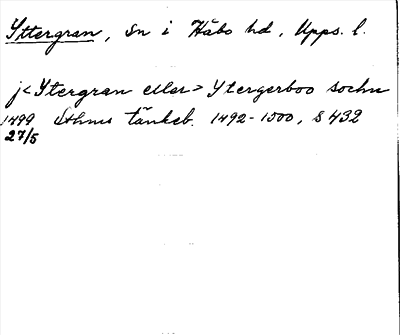 Yttergran, sn i Håbo hd, Upps. l.
j < Ytergran eller > Ytergerboo sochn
1499 Sthms tänkeb. 1492-1500, s 432
27/5